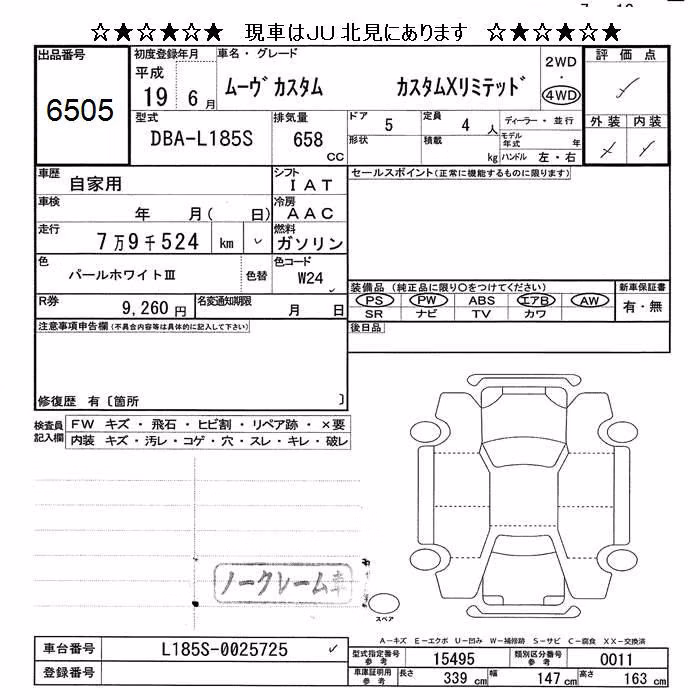 ☆★☆★☆★ 現車はJU北見にあります ☆★☆★☆★
出品番号
6505
初度登録年月
平成
19 6 月
車名・グレード
ムーヴカスタム カスタムXリミテッド
2WD
・
4WD
評価点
外装 内装
型式
DBA-L185S
排気量
658
CC
ドア 5
定員 4 人
ディーラー・並行
形状
積載
kg
モデル年式 年
ハンドル 左・右
車歴
自家用
シフト
IAT
車検
年 月( 日)
冷房
AAC
走行
7万9千524 km
燃料
ガソリン
色
パールホワイトⅢ
色替
色コード
W24
R券
9,260 円
名変通知期限
月 日
セールスポイント(正常に機能するものに限ります)
装備品(純正品に限り○をつけてください)
PS PW ABS エアB AW
SR ナビ TV カワ
新車保証書
有・無
後日品
注意事項申告欄(不具合内容等は具体的に記入して下さい)
修復歴 有〔箇所 〕
検査員記入欄
FW キズ・飛石・ヒビ割・リペア跡・×要
内装 キズ・汚レ・コゲ・穴・スレ・キレ・破レ
ノークレーム車
スペア
A-キズ E-エクボ U-凹み W-補修跡 S-サビ C-腐食 XX-交換済
車台番号
L185S-0025725
登録番号
型式指定番号参考
15495
類別区分番号参考
0011
車庫証明用参考
長さ 339 cm
幅 147 cm
高さ 163 cm